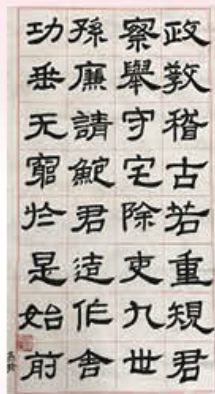 政教稽古若重規君
察舉守宅除吏九世
孫廉請鮑君造作舍
功垂无窮於是始前